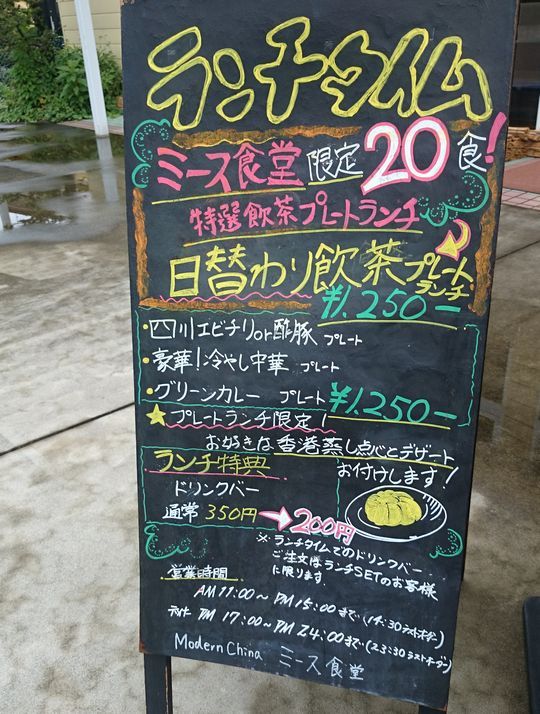 ランチタイム
ミース食堂 限定20食!
特選飲茶プレートランチ
日替わり飲茶プレートランチ
¥1.250-
・四川エビチリor酢豚 プレート
・豪華!冷やし中華 プレート
・グリーンカレー プレート ¥1.250-
★プレートランチ限定!
お好きな香港蒸し点心とデザート
お付けします!
ランチ特典
ドリンクバー
通常 350円→200円
※ランチタイムでのドリンクバー
ご注文はランチSETのお客様
に限ります.
営業時間
AM 11:00~PM 15:00まで(14:30ラストオーダー)
ディナー PM 17:00~PM 24:00まで(23:30ラストオーダー)
Modern China ミース食堂